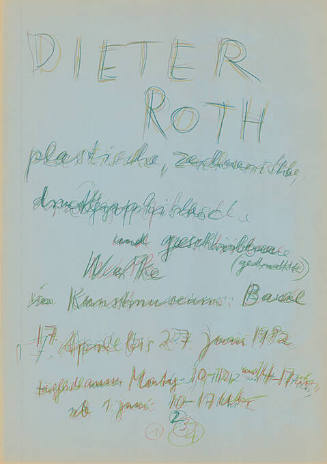 DIETER
ROTH
plastische, zeichnerische,
druckgraphische
und geschriebene
(gedruckte)
Werke
im Kunstmuseum Basel
17. April bis 27. Juni 1972
täglich ausser Montag 10-12 und 14-17 Uhr,
ab 1. Juni 10-17 Uhr
2